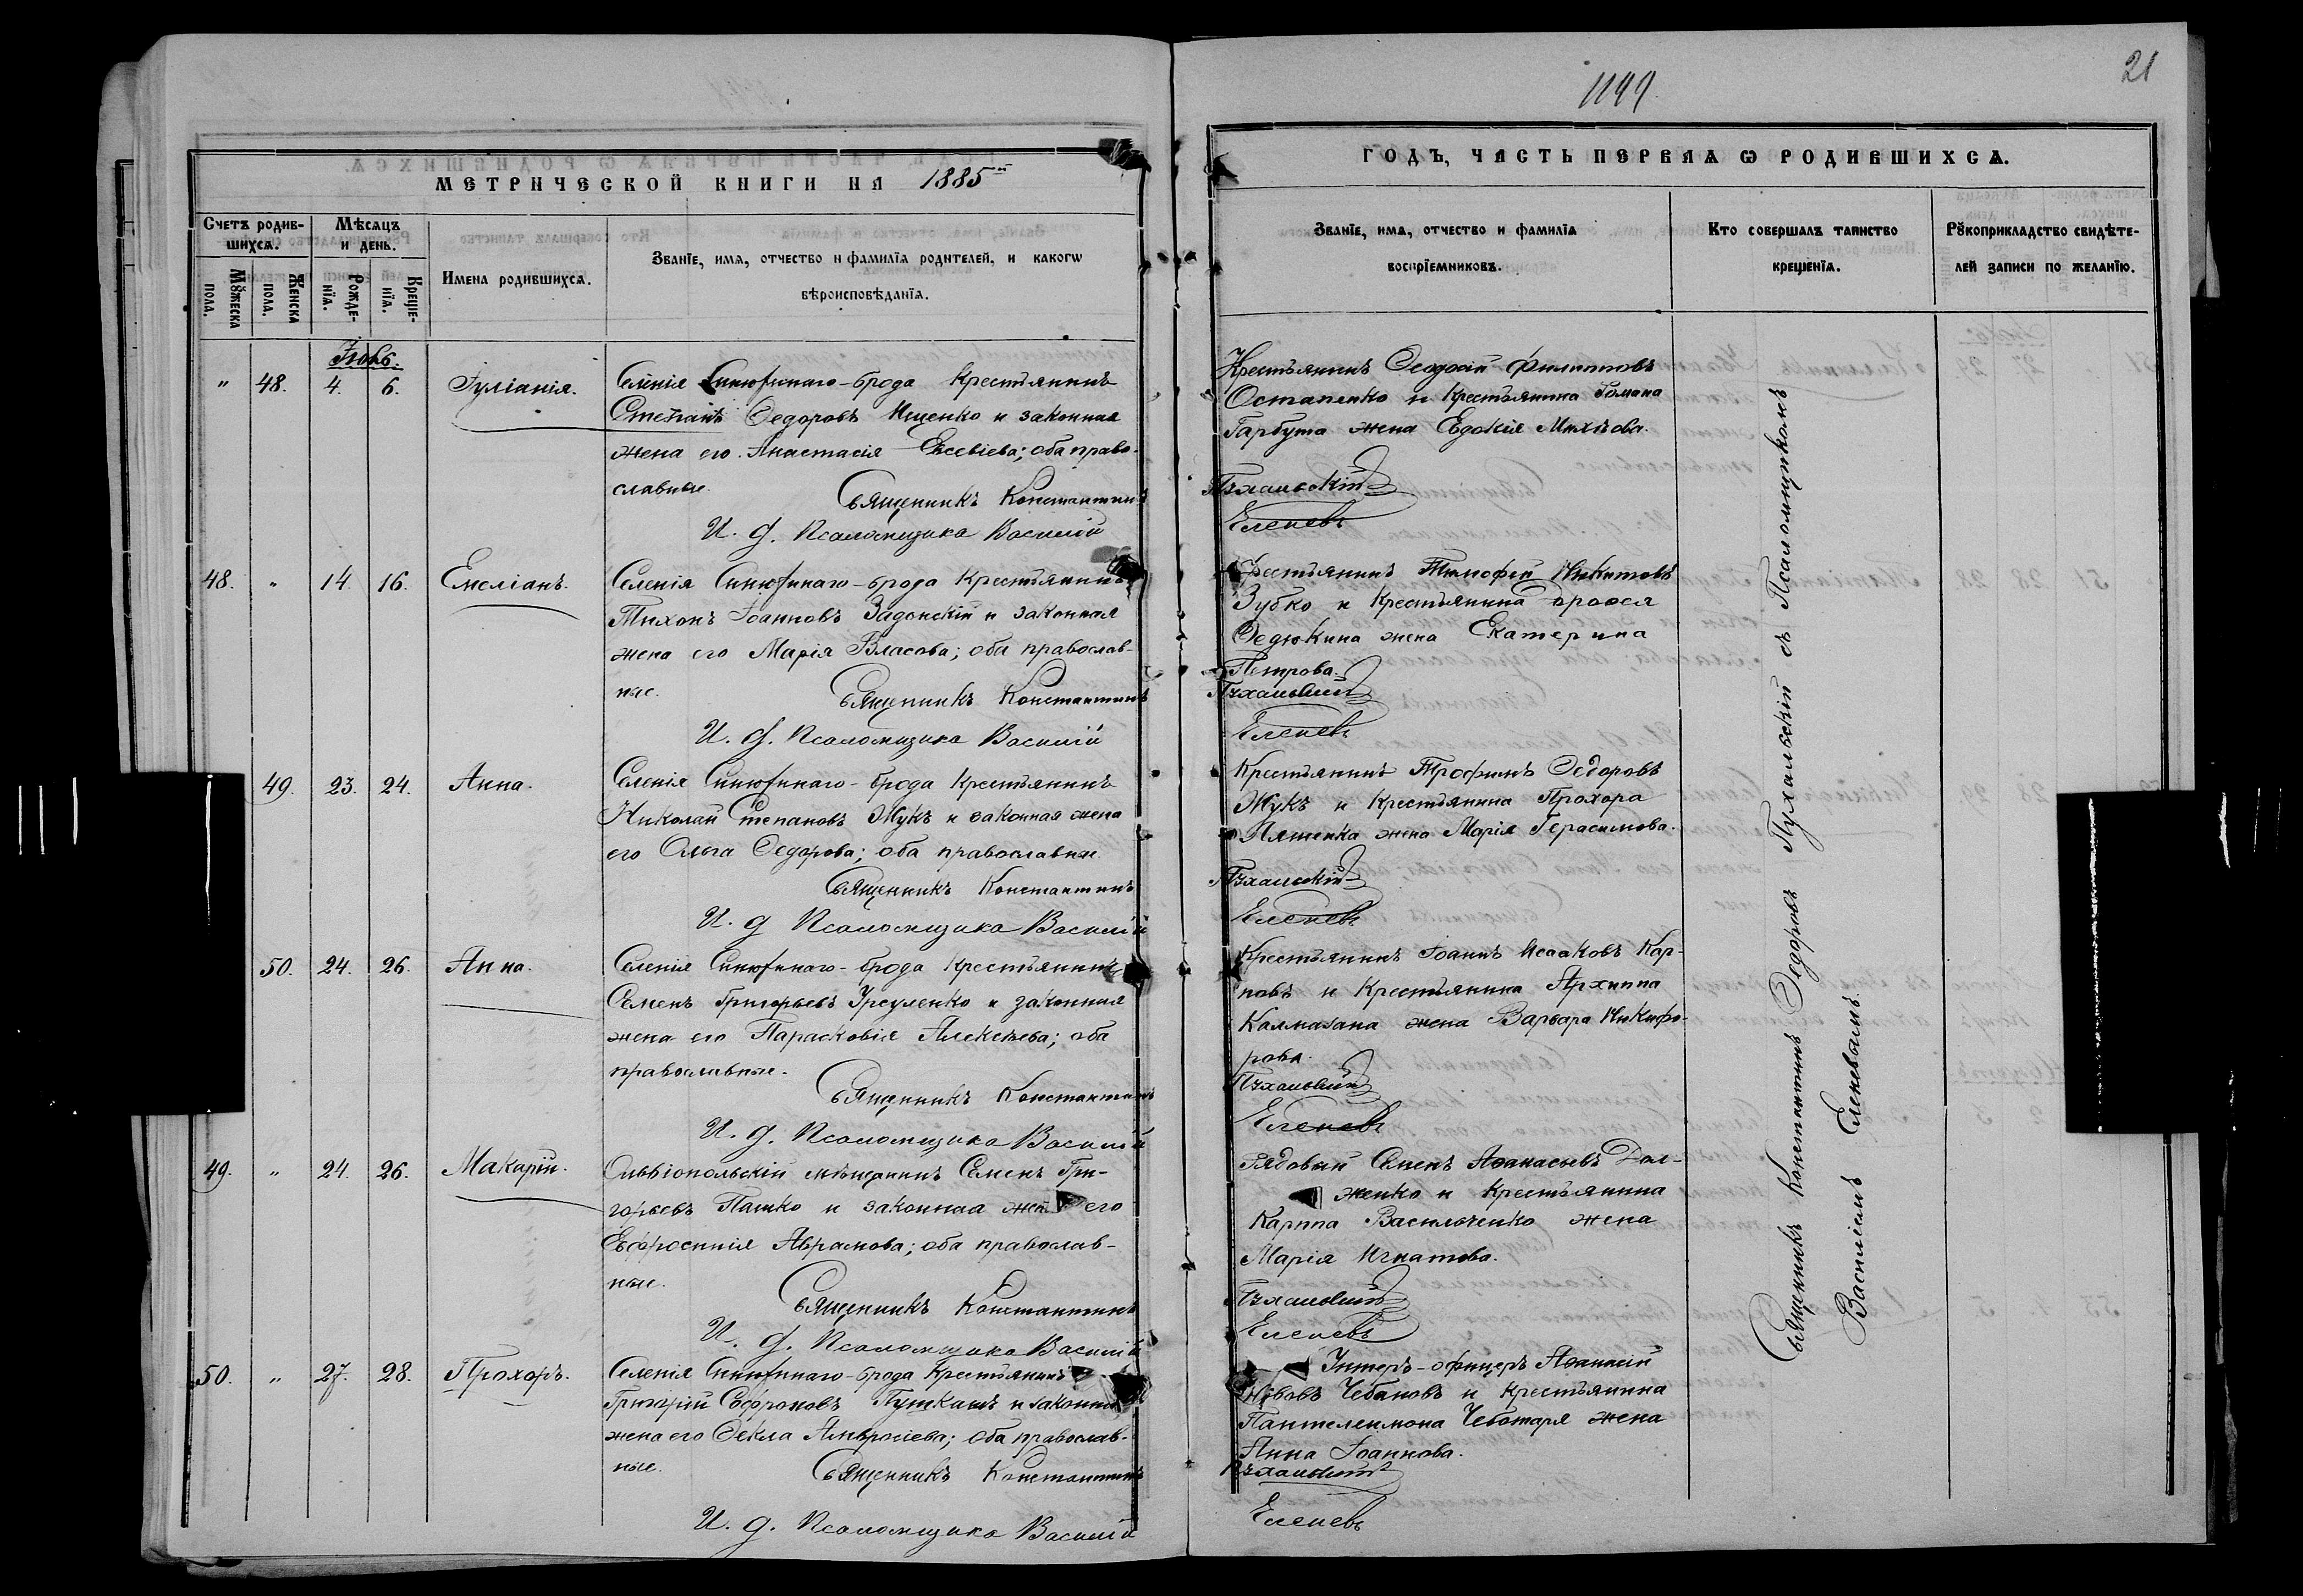 21
1199
МЕТРИЧЕСКОЙ КНИГИ НА 1885й
ГОДЪ, ЧАСТЬ ПЕРВАѦ Ѡ РОДИВШИХСѦ.
Счетъ родив-
шихсѧ.
Мѣсѧцъ
и день.
Мꙋжеска
пола.
Женска
пола.
Рожде-
нїѧ.
Креще-
нїѧ.
Имена родившихсѧ.
Званїе, имѧ, отчество и фамилїѧ родителей, и какогѡ
вѣроисповѣданїѧ.
Званїе, имѧ, отчество и фамилїѧ
воспрїемниковъ.
Кто совершалъ таинство
крещенїѧ.
Рꙋкоприкладство свидѣте-
лей записи по желанїю.
Іюль.
" 48. 4. 6. Іуліанія.
Селенія Синюхинаго-брода Крестьянинъ
Стефанъ Ѳедоровъ Ищенко и законная
жена его Анастасія Евсевіева; оба право-
славные.
Священникъ Константинъ
И. д. Псаломщика Василій
Крестьянинъ Ѳеодосій Филипповъ
Остапенко и Крестьянина Романа
Гарбуза жена Евдокія
Пухальскій
Еленевъ
48. " 14. 16. Емеліанъ.
Селенія Синюхинаго-брода Крестьянинъ
Тихонъ Іоанновъ Задонскій и законная
жена его Марія Власова; оба православ-
ные.
Священникъ Константинъ
И. д. Псаломщика Василій
Крестьянинъ Тимофей Никитовъ
Зубко и Крестьянина
Ѳедюкина жена Екатерина
Петрова.
Пухальскій
Еленевъ
49. 23. 24. Анна.
Селенія Синюхинаго-брода Крестьянинъ
Николай Степановъ Жукъ и законная жена
его Ольга Ѳедорова; оба православные
Священникъ Константинъ
И. д. Псаломщика Василій
Крестьянинъ Трофимъ Ѳедоровъ
Жукъ и Крестьянина Прохора
жена Марія Герасимова.
Пухальскій
Еленевъ
50. 24. 26. Анна.
Селенія Синюхинаго-брода Крестьянинъ
Семенъ Григорьевъ Урсуленко и законная
жена его Парасковія Алексѣева; оба
православные.
Священникъ Константинъ
И. д. Псаломщика Василій
Крестьянинъ Іоаннъ Исааковъ Кар-
повъ и Крестьянина Архиппа
Калмазана жена Варвара Никифо-
рова.
Пухальскій
Еленевъ
49. " 24. 26. Макарій.
Ольвіопольскій мѣщанинъ Семенъ Гри-
горьевъ Пашко и законная жена его
Евфросинія Аврамова; оба православ-
ные.
Священникъ Константинъ
И. д. Псаломщика Василій
Рядовый Семенъ Аѳанасьевъ Дол-
женко и Крестьянина
Карппа Васильченко жена
Марія Игнатова.
Пухальскій
Еленевъ
50. " 27. 28. Прохоръ.
Селенія Синюхинаго-брода Крестьянинъ
Григорій Софроновъ Пушкашъ и законная
жена его Ѳекла Амвросіева; оба православ-
ные.
Священникъ Константинъ
И. д. Псаломщика Василій
Унтеръ-офицеръ Аѳанасій
Чебановъ и Крестьянина
Пантелеимона Чеботаря жена
Анна Іоаннова.
Пухальскій
Еленевъ
Священникъ Константинъ Ѳедоровъ Пухальскій съ Псаломщикомъ
Василіемъ Еленевымъ.